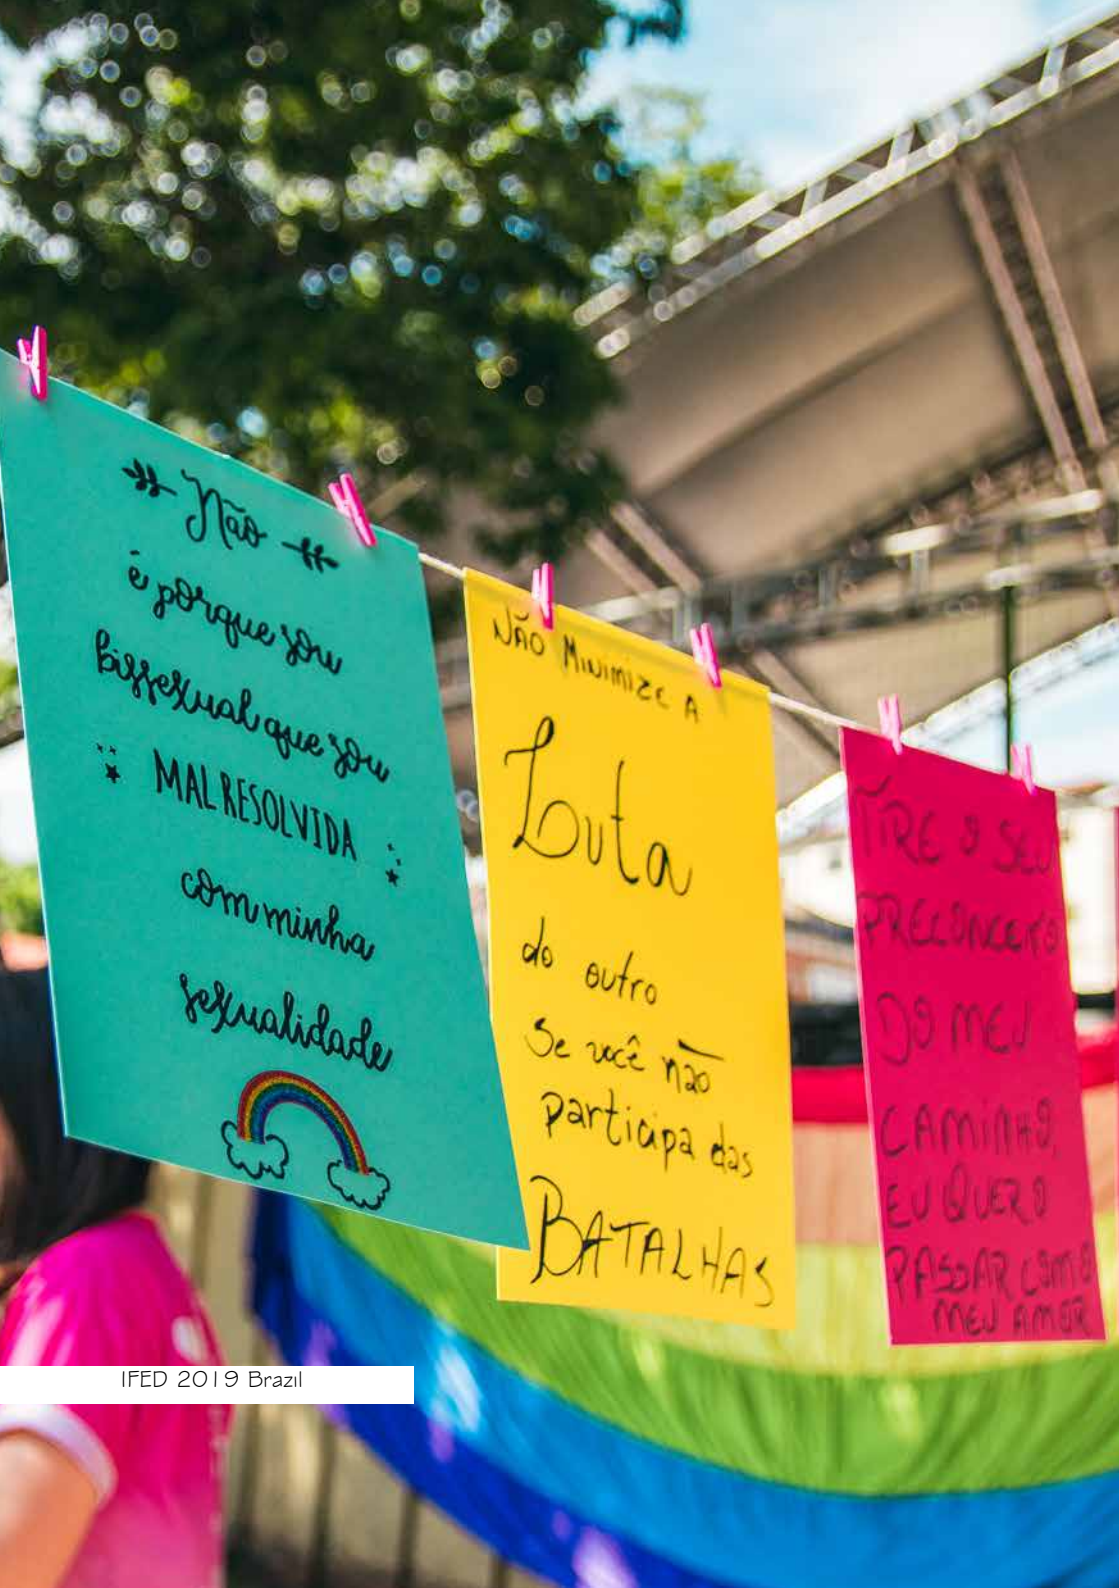 Não
é porque sou
bissexual que sou
MAL RESOLVIDA
com minha
sexualidade
NÃO MINIMIZE A
Luta
do outro
Se você não
participa das
BATALHAS
TIRE O SEU
PRECONCEITO
DO MEU
CAMINHO,
EU QUERO
PASSAR COM O
MEU AMOR
IFED 2019 Brazil